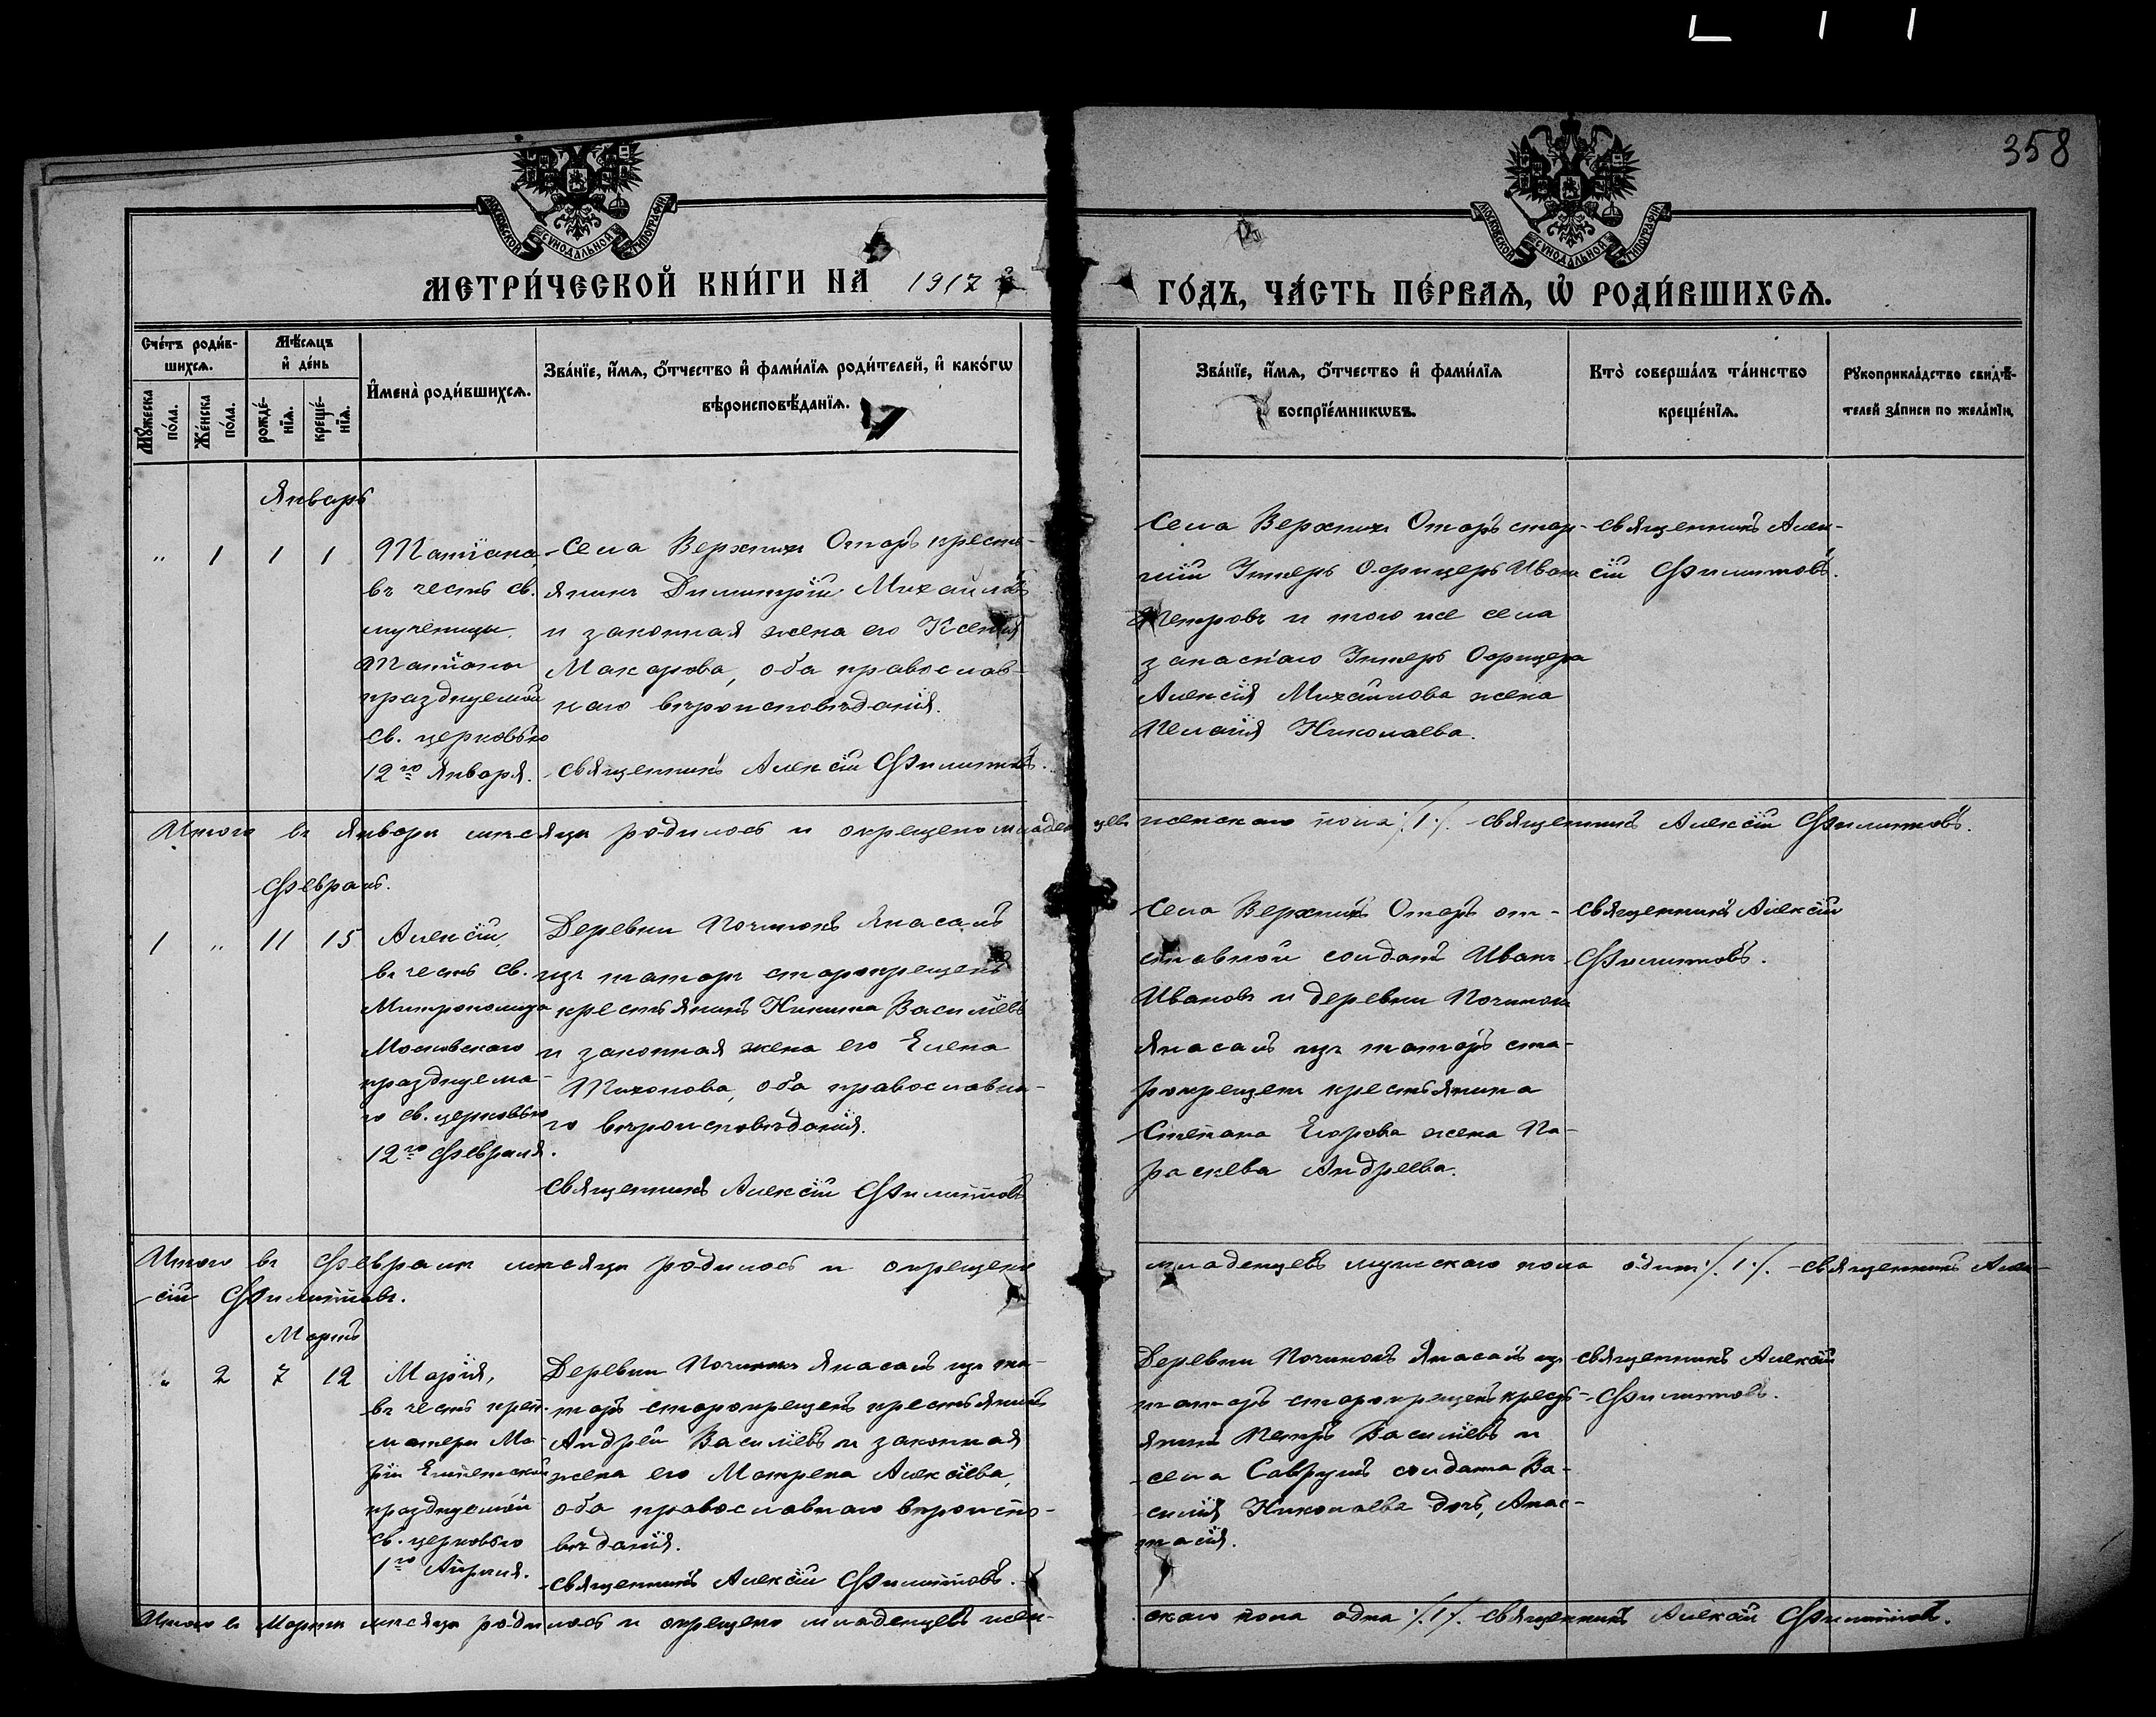 358
МОСКОВСКОЙ СѴНОДАЛЬНОЙ ТИПОГРАФІИ
МОСКОВСКОЙ СѴНОДАЛЬНОЙ ТИПОГРАФІИ
МЕТРИ́ЧЕСКОЙ КНИ́ГИ НА 1917 й
ГО́ДЪ, ЧА́СТЬ ПЕ́РВАѦ, Ѽ РОДИ́ВШИХСѦ.
Сче́тъ роди́в-
шихсѧ.
Мѣ́сѧцъ
и҆ де́нь
Мꙋ́жеска по́ла.
Же́нска по́ла.
рожде́-нїѧ.
креще́-нїѧ.
И҆мена̀ роди́вшихсѧ.
Зва́нїе, и҆́мѧ, ѻ҆́тчество и҆ фами́лїѧ роди́телей, и҆ како́гѡ
вѣроисповѣ́данїѧ.
Зва́нїе, и҆́мѧ, ѻ҆́тчество и҆ фами́лїѧ
воспрїе́мникѡвъ.
Кто̀ соверша́лъ та́инство
креще́нїѧ.
Рꙋкоприкла́дство свидѣ́-
телей за́писи по жела́нїю.
Январь
" 1 1 1
Татіана,
въ честь св.
мученицы
Татіаны
празднуемой
св. церковью
12го Января.
Села Верхнихъ Отаръ кресть-
янинъ Димитрій Михайловъ
и законная жена его Ксенія
Макарова, оба православ-
наго вѣроисповѣданія.
Священникъ Алексій Филипповъ.
Села Верхнихъ Отаръ стар-
шій Унтеръ Офицеръ Иванъ
Петровъ и того же села
запаснаго Унтеръ Офицера
Алексія Михайлова жена
Пелагія Николаева.
Священникъ Алек-
сій Филипповъ.
Итого въ Январѣ мѣсяцѣ родилось и окрещено младенцевъ женскаго пола ./.1./. Священникъ Алексій Филипповъ.
Февраль.
1 " 11 15
Алексій,
въ честь св.
Митрополита
Московскаго
празднуема-
го св. церковью
12го Февраля.
Деревни Починокъ Янасалъ
изъ татаръ старокрещенъ
крестьянинъ Никита Васильевъ
и законная жена его Елена
Тихонова, оба православна-
го вѣроисповѣданія.
Священникъ Алексій Филипповъ
Села Верхнихъ Отаръ от-
ставной солдатъ Иванъ
Ивановъ и деревни Починокъ
Янасалъ изъ татаръ ста-
рокрещенъ крестьянина
Степана Егорова жена Па-
раскева Андреева.
Священникъ Алексій
Филипповъ.
Итого въ Февралѣ мѣсяцѣ родилось и окрещено младенцевъ мужскаго пола одинъ ./.1./. Священникъ Алек-
сій Филипповъ.
Мартъ
" 2 7 12
Марія,
въ честь преп.
матери Ма-
ріи Египетской
празднуемой
св. церковью
1го Апреля.
Деревни Починокъ Янасалъ изъ та-
таръ старокрещенъ крестьянинъ
Андрей Васильевъ и законная
жена его Матрена Алексѣева,
оба православнаго вѣроиспо-
вѣданія.
Священникъ Алексій Филипповъ.
Деревни Починокъ Янасалъ изъ
татаръ старокрещенъ кресть-
янинъ Петръ Васильевъ и
села Саврушъ солдата Ва-
силія Николаева дочь, Анас-
тасія.
Священникъ Алексій
Филипповъ.
Итого въ Мартѣ мѣсяцѣ родилось и окрещено младенцевъ жен-
скаго пола одна ./.1./. Священникъ Алексій Филипповъ.